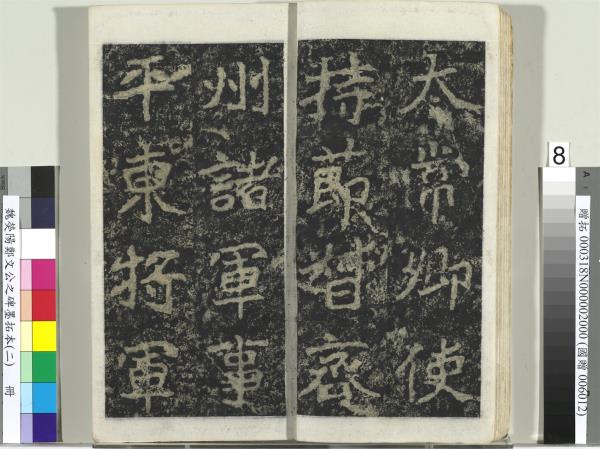 太常卿使
持莭督齊
州諸軍事
平東將軍
魏滎陽鄭文公之碑墨拓本(二) 冊
8
A
贈拓 000318N000002000 (國贈 006012)